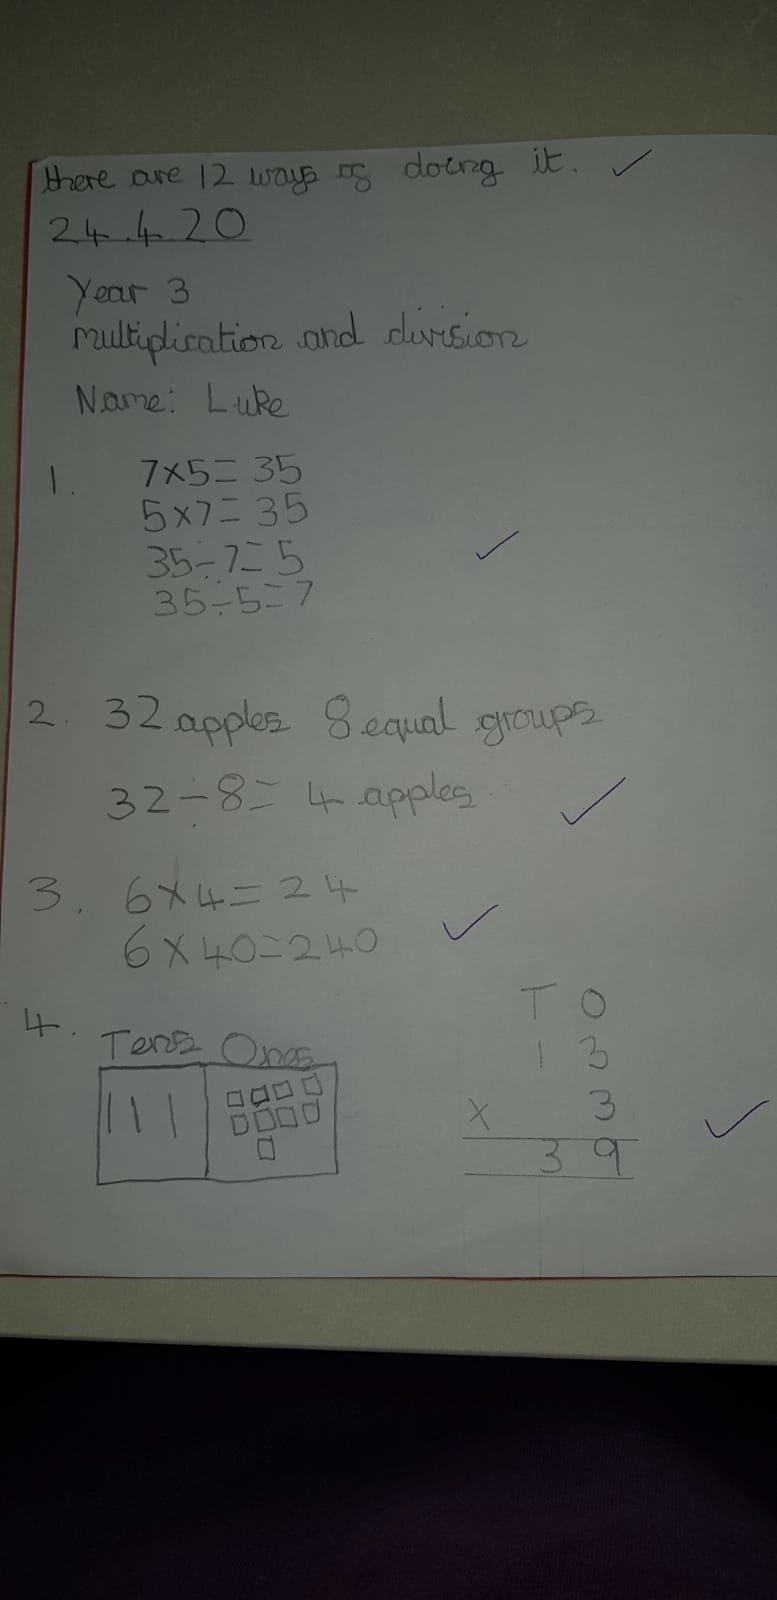 there are 12 ways of doing it. ✓
24.4.20
Year 3
multiplication and division
Name: Luke
1. 7×5=35
5×7=35
35÷7=5
35÷5=7
2. 32 apples 8 equal groups
32÷8= 4 apples
3. 6×4=24
6×40=240
4. Tens Ones
T O
1 3
× 3
3 9